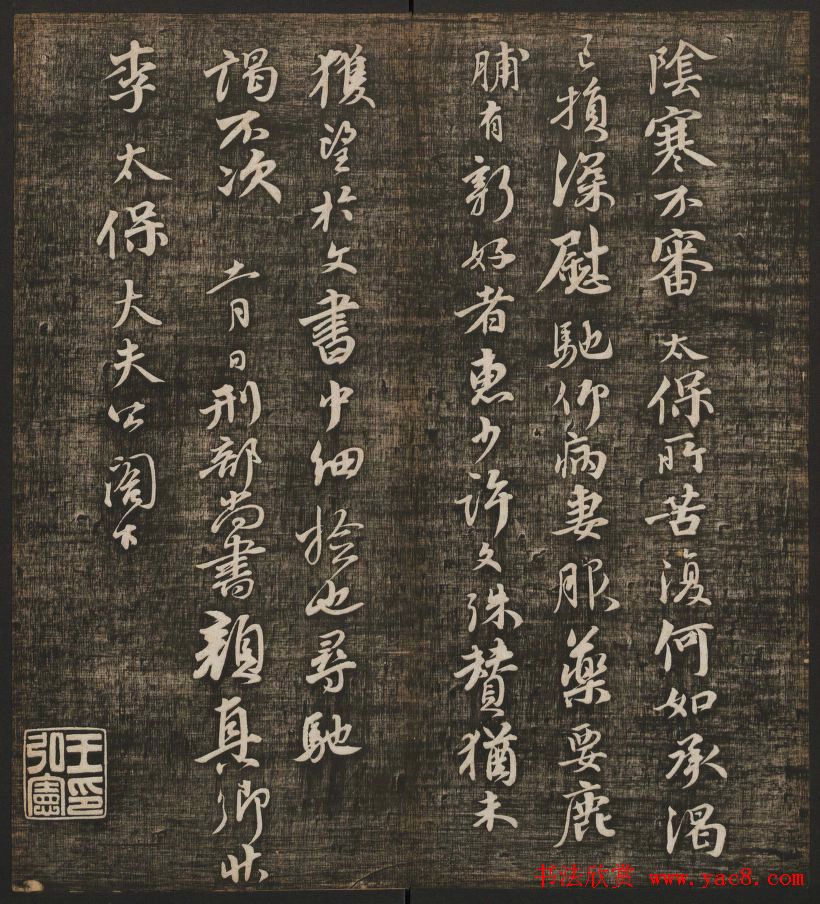 陰寒不審太保所苦復何如承渴
已損深慰馳仰病妻服藥要鹿
脯有新好者惠少許文殊贊猶未
獲望於文書中細撿也尋馳
謁不次 十一月日刑部尚書顏真卿狀
李太保大夫公閤下
王弘憲印
书法欣赏 www.yac8.com